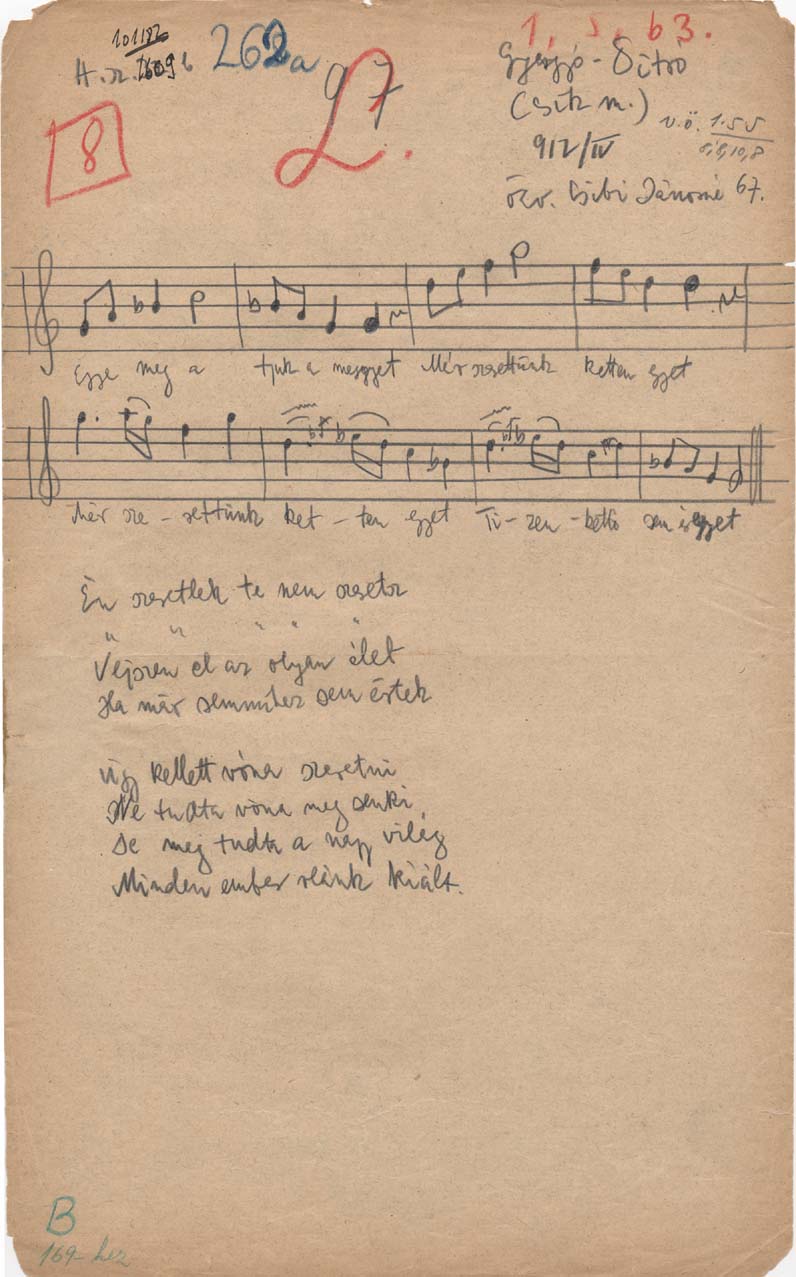 101182
H.sz. 1609 b
262a
97
L.
8
1. 5. 63.
Gyergyó-Ditró
(Csík m.)
912/IV
v.ö. 1.5 5
özv. Csibi Jánosné 67.
Egye meg a tjuk a meggyet Mér szesettünk ketten egyet
Mér sze - settünk ket - ten egyet Ti - zen - kettő sem is egyet
Én szesetlek te nem szesetsz
" " " " "
Vejszen el az olyan élet
Ha már semmihez sem értek
Úgy kellett vóna szeretni
Ne tudta vóna meg senki,
De meg tudta a nagy világ
Minden ember reánk kiált.
B
169-hez